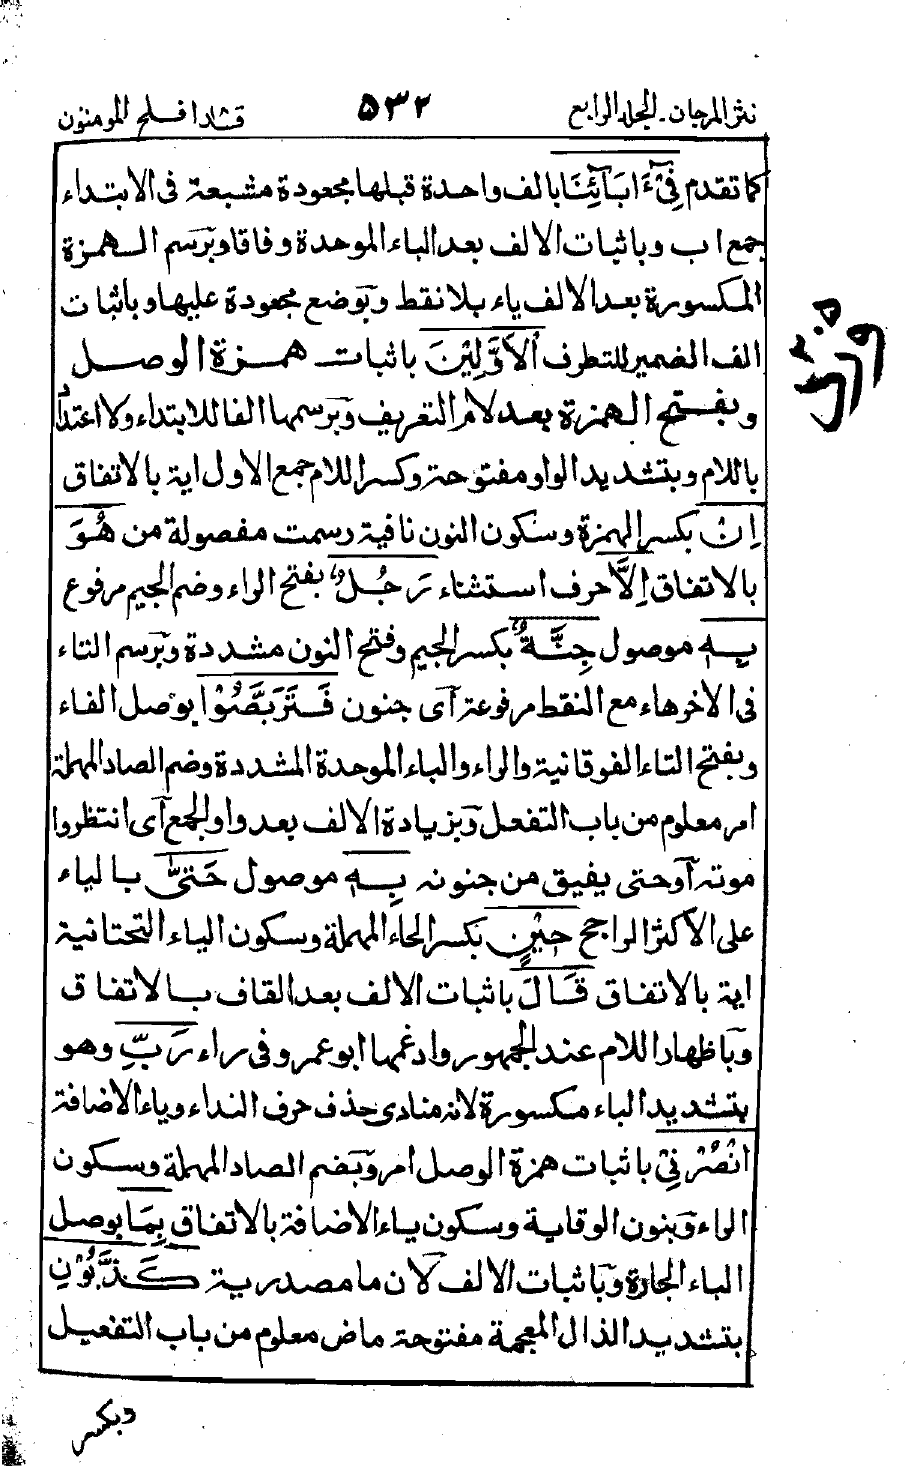 نثر المرجان۔ الجلد الرابع ۵۳۲ قد افلح المومنون
كما تقدم فِيْٓ ءَابَآئِنَا بالف واحدة قبلها مجعودة مشبعة فى الابتداء
جمع اب وباثبات الالف بعد الباء الموحدة وفاقا وبرسم الهمزة
المكسورة بعد الالف ياء بلا نقط وبوضع مجعودة عليها وباثبات
الف الضمير للتطرف الْاَوَّلِيْنَ باثبات همزة الوصل
وبفتح الهمزة بعد لام التعريف وبرسمها الفا للابتداء ولا اعتداد
باللام وبتشديد الواو مفتوحة وكسر اللام جمع الاول اية بالاتفاق
اِنْ بكسر الهمزة وسكون النون نافية رسمت مفصولة من هُوَ
بالاتفاق اِلَّا حرف استثناء رَجُلٌۢ بفتح الراء وضم الجيم مرفوع
بِهٖ موصول جِنَّةٌ بكسر الجيم وفتح النون مشددة وبرسم التاء
فى الاخر هاء مع النقط مرفوعة اى جنون فَتَرَبَّصُوْا بوصل الفاء
وبفتح التاء الفوقانية والراء والباء الموحدة المشددة وضم الصاد المهملة
امر معلوم من باب التفعل وبزيادة الالف بعد واو الجمع اى انتظروا
موته او حتى يفيق من جنونه بِهٖ موصول حَتّٰى بالياء
على الاكثر الراجح حِيْنٍ بكسر الحاء المهملة وسكون الياء التحتانية
اية بالاتفاق قَالَ باثبات الالف بعد القاف بالاتفاق
وباظهار اللام عند الجمهور وادغمها ابو عمرو فى راء رَبِّ وهو
بتشديد الباء مكسورة لانه منادى حذف حرف النداء وياء الاضافة
انْصُرْنِيْ باثبات همزة الوصل امر وبضم الصاد المهملة وسكون
الراء وبنون الوقاية وسكون ياء الاضافة بالاتفاق بِمَا بوصل
الباء الجارة وباثبات الالف لان ما مصدرية كَذَّبُوْنِ
بتشديد الذال المعجمة مفتوحة ماض معلوم من باب التفعيل
وبكسر